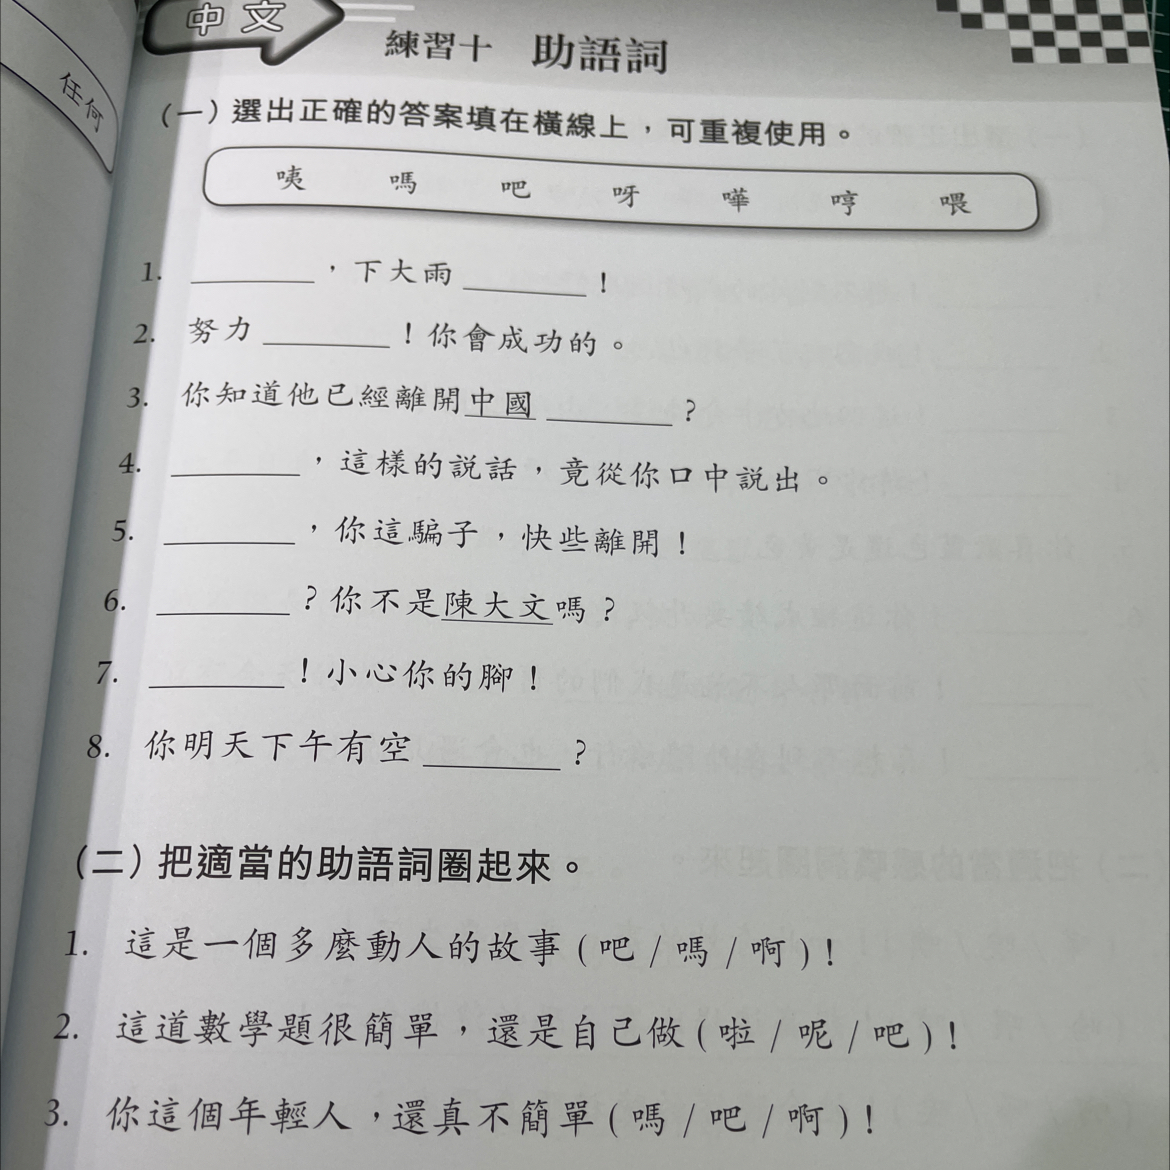 中文
任何
練習十 助語詞
(一)選出正確的答案填在橫線上，可重複使用。
咦 嗎 吧 呀 嘩 哼 喂
1. ________，下大雨________！
2. 努力________！你會成功的。
3. 你知道他已經離開中國________？
4. ________，這樣的說話，竟從你口中說出。
5. ________，你這騙子，快些離開！
6. ________？你不是陳大文嗎？
7. ________！小心你的腳！
8. 你明天下午有空________？
(二)把適當的助語詞圈起來。
1. 這是一個多麼動人的故事(吧/嗎/啊)！
2. 這道數學題很簡單，還是自己做(啦/呢/吧)！
3. 你這個年輕人，還真不簡單(嗎/吧/啊)！